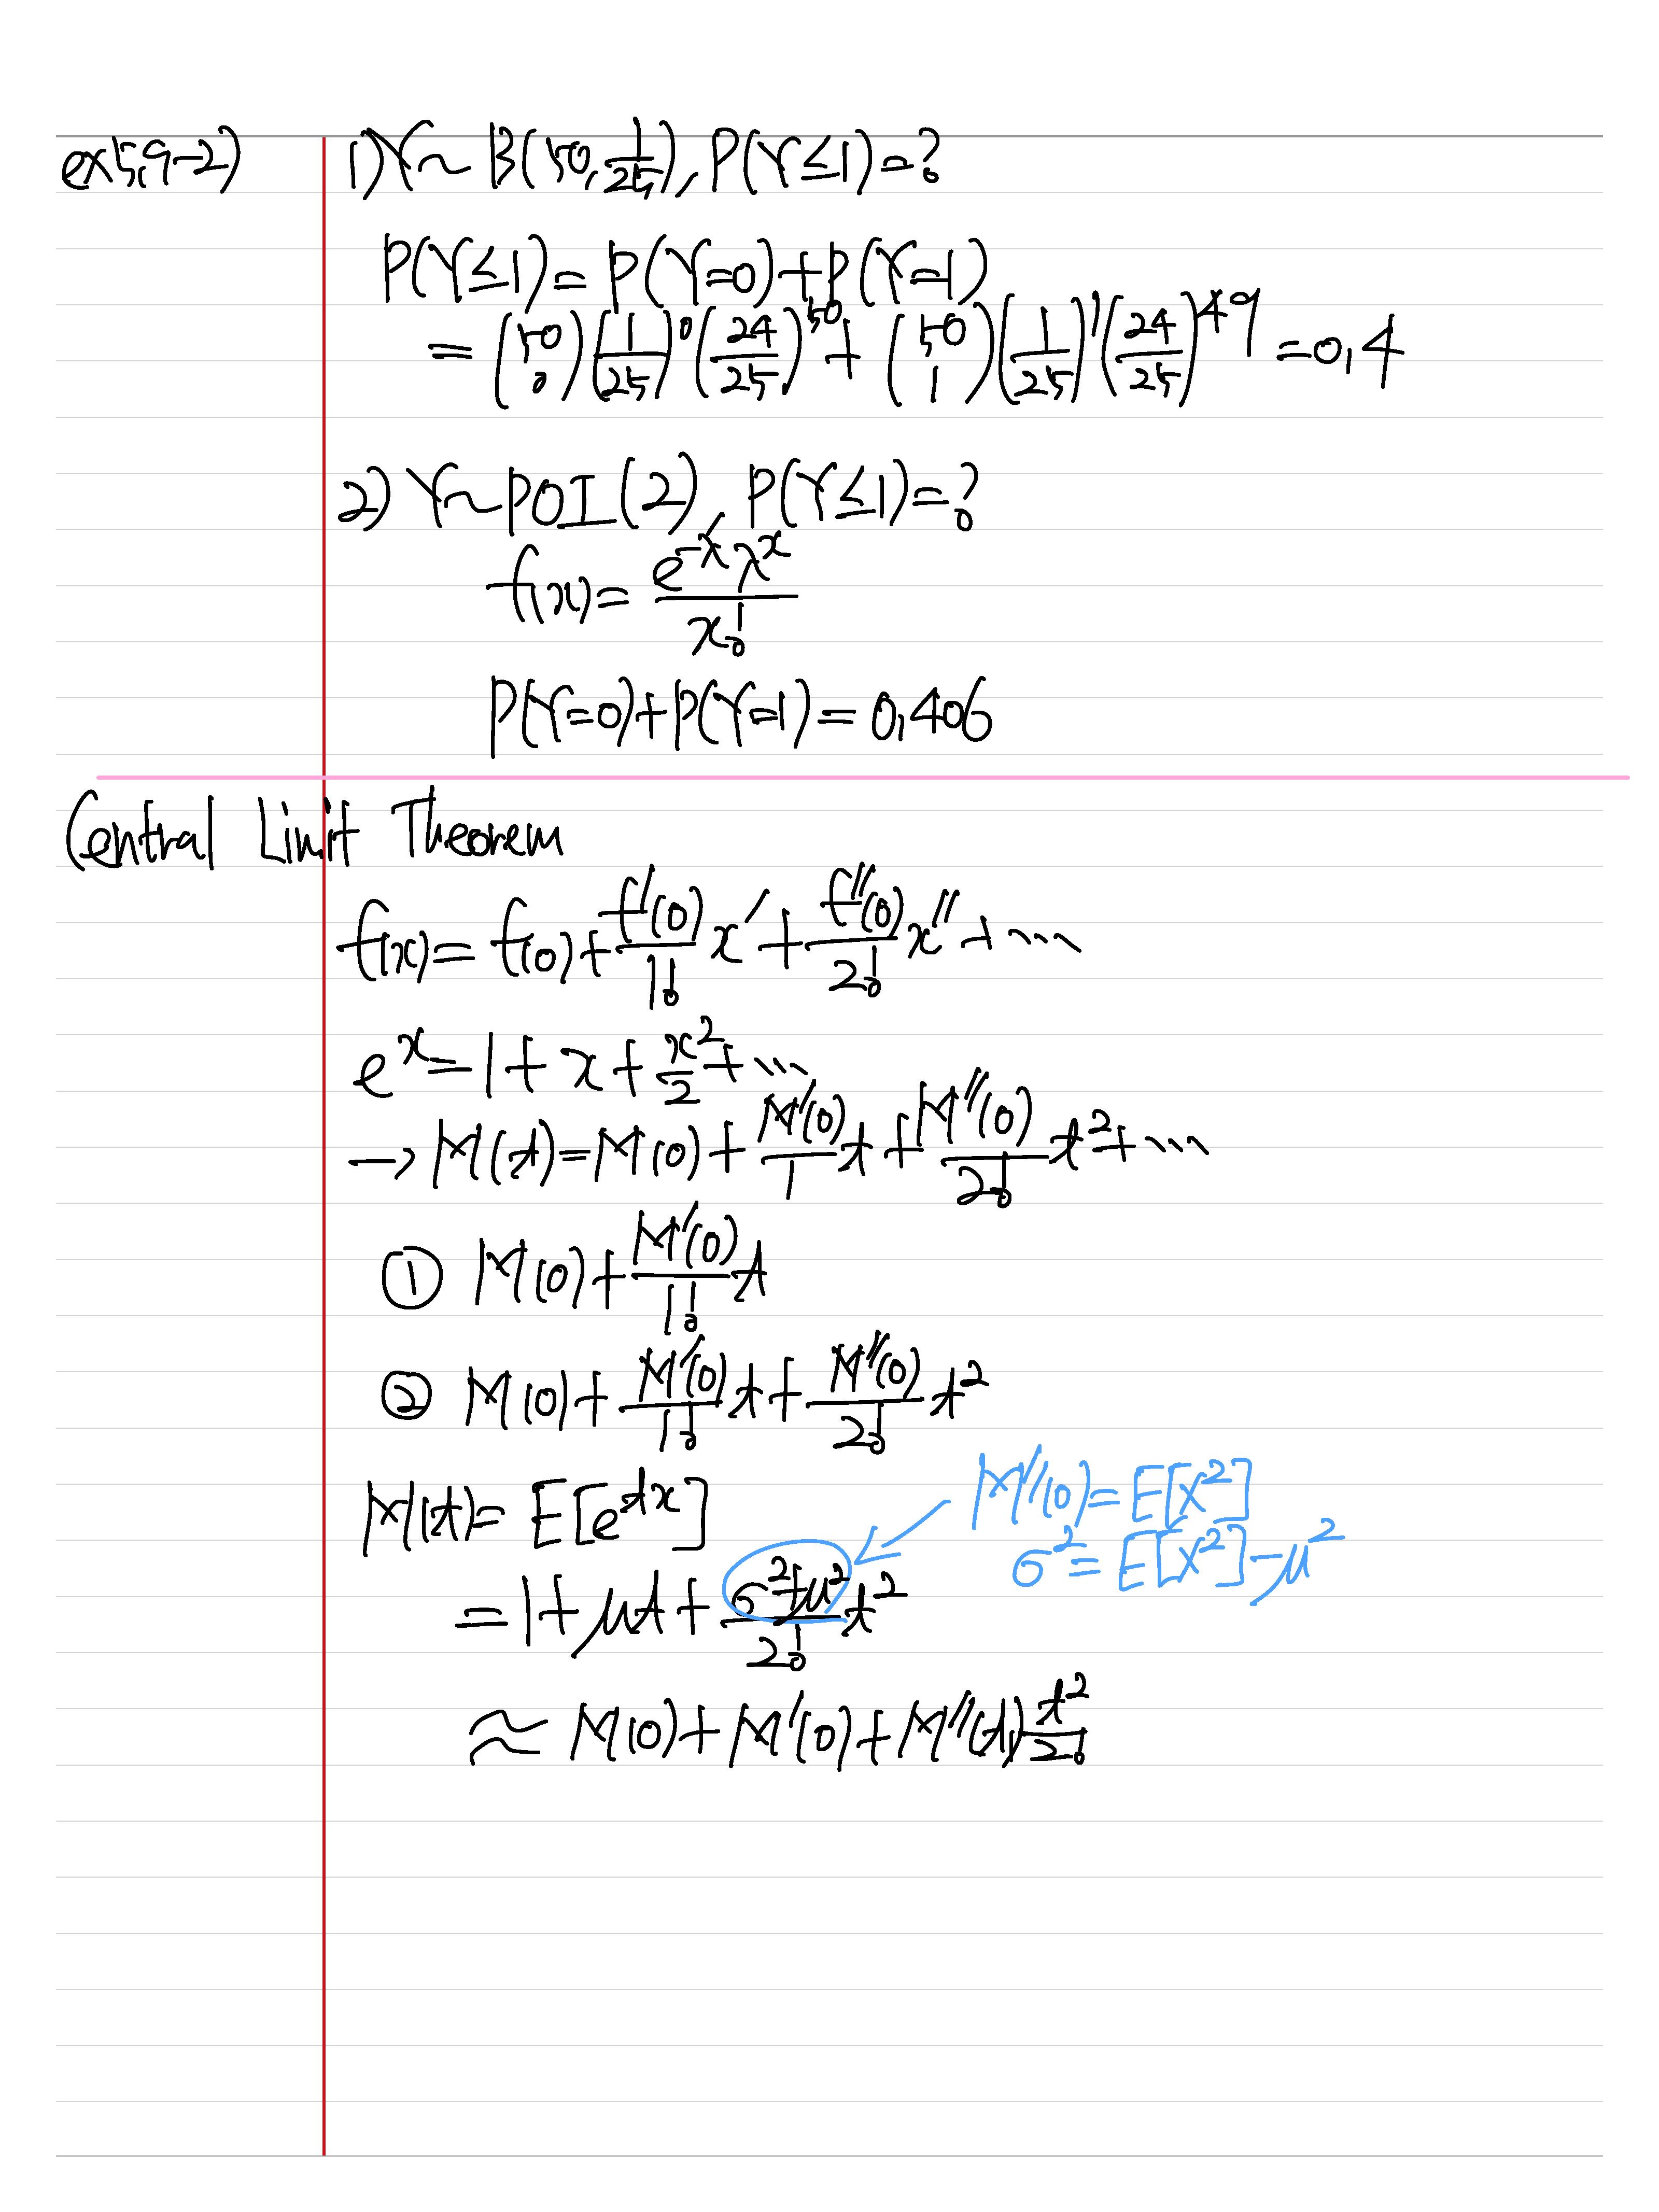 ex5.9-2) 1) Y~B(50, 1/25), P(Y≤1)=?
P(Y≤1)=P(Y=0)+P(Y=1)
=(50 0)(1/25)^0(24/25)^50+(50 1)(1/25)^1(24/25)^49=0.4
2) Y~POI(2), P(Y≤1)=?
f(x)=e^-λ λ^x/x!
P(Y=0)+P(Y=1)=0.406
Central Limit Theorem
f(x)=f(0)+f'(0)/1! x'+f''(0)/2! x''+⋯
e^x=1+x+x^2/2+⋯
→M(t)=M(0)+M'(0)/1 t+M''(0)/2! t^2+⋯
① M(0)+M'(0)/1! t
② M(0)+M'(0)/1! t+M''(0)/2! t^2
M(t)=E[e^tx]
M''(0)=E[X^2]
σ^2=E[X^2]-μ^2
=1+μt+σ^2+μ^2/2! t^2
≈M(0)+M'(0)+M''(t) t^2/2!